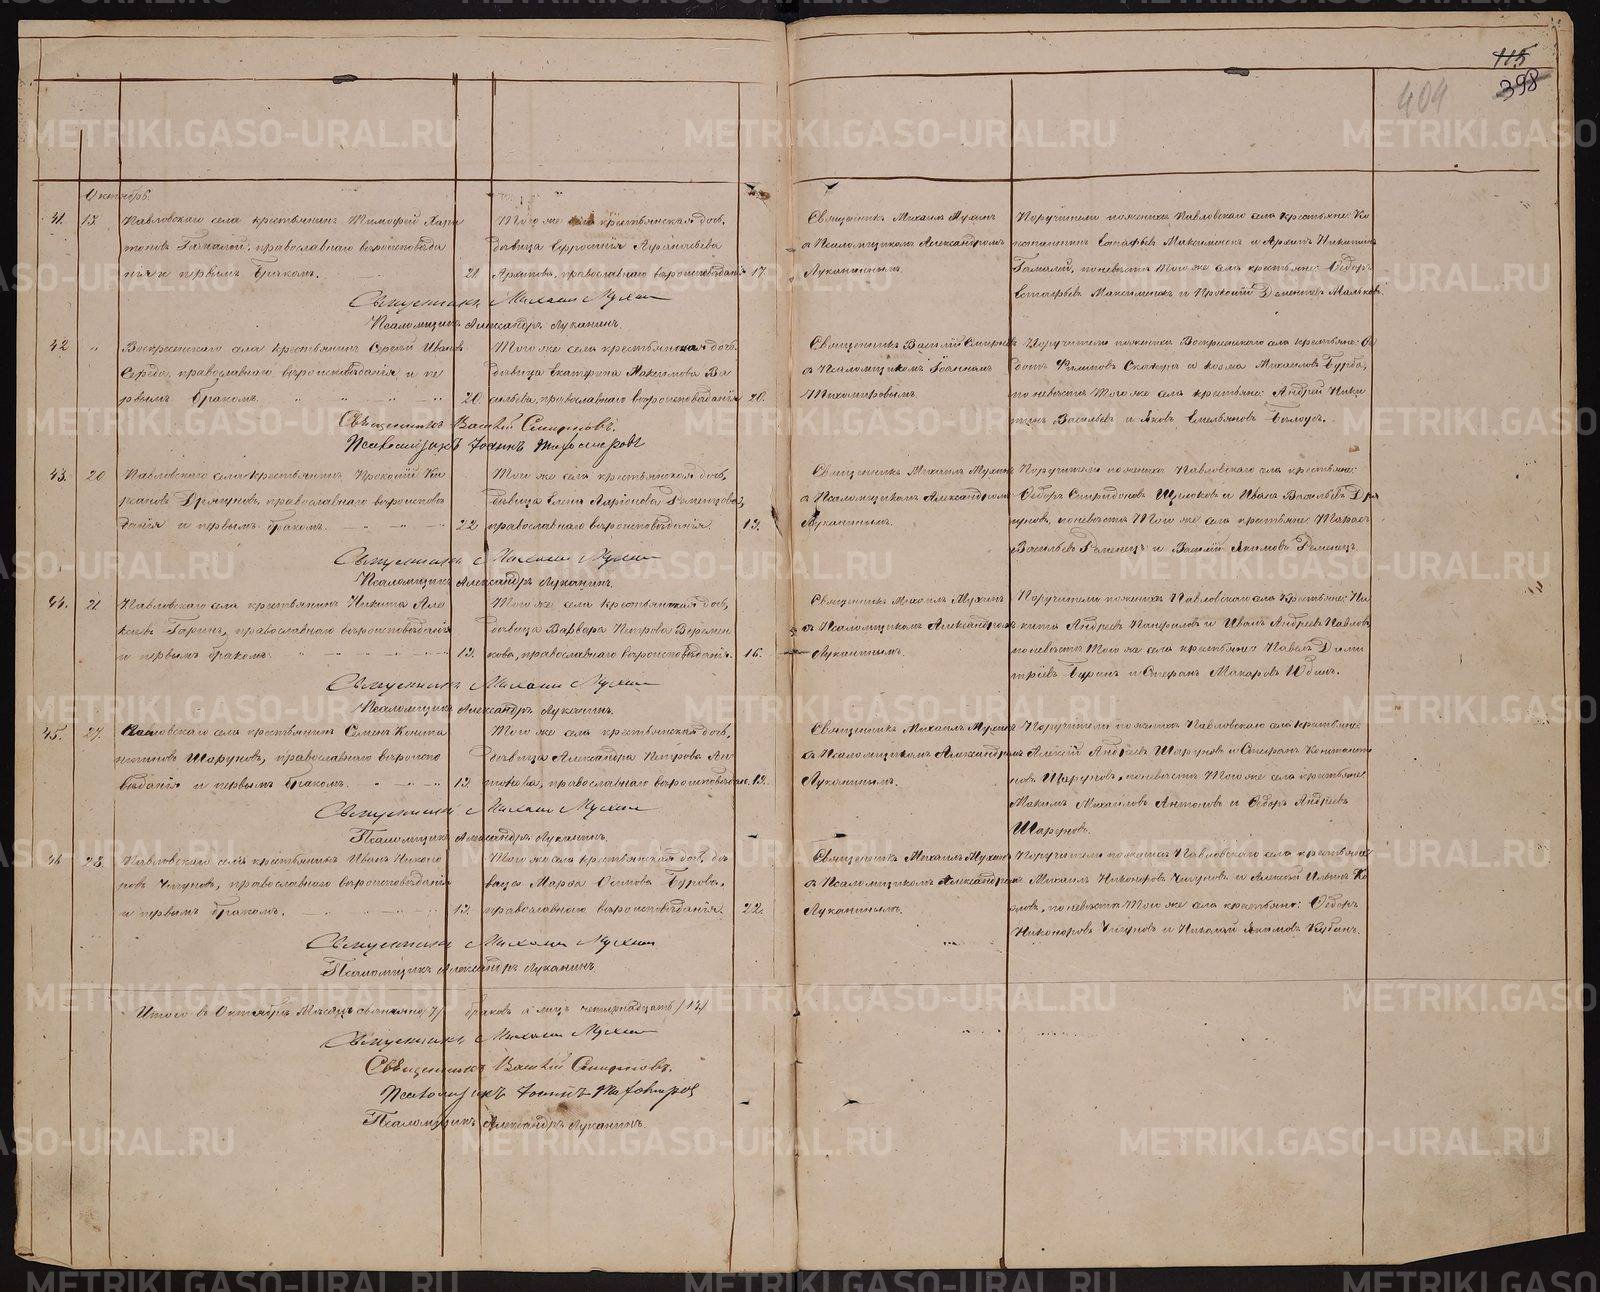 115
398
404
Октябрь.
41. 13. Павловскаго села крестьянинъ Тимофей Хари
тоновъ Гамалѣй, православнаго вѣроисповѣда
нія и первымъ бракомъ. 21
Того же села крестьянская дочь,
дѣвица Ефросинія
Архипова, православнаго вѣроисповѣданія 17.
Священникъ Михаилъ Мухинъ
съ Псаломщикомъ Александромъ
Луканинымъ.
Поручители по женихѣ Павловскаго села крестьяне: Ко
нстантинъ Евстафьевъ Максименко и Архипъ Никитинъ
Гамалѣй, по невѣстѣ того же села крестьяне: Ѳедоръ
Евстафьевъ Максименко и Прокопій Дементьевъ
Священникъ Михаилъ Мухинъ
Псаломщикъ Александръ Луканинъ.
42 " Воскресенскаго села крестьянинъ Сергѣй Ивановъ
Середа, православнаго вѣроисповѣданія и пе
рвымъ бракомъ. 20.
Того же села крестьянская дочь,
дѣвица Екатерина Максимова Ва
сильева, православнаго вѣроисповѣданія 20.
Священникъ Василій Смирновъ
съ Псаломщикомъ Іоанномъ
Тихомировымъ.
Поручители по женихѣ Воскресенскаго села крестьяне: Ѳе
дотъ Филиповъ Скакунъ и Козма Михаиловъ Бурба,
по невѣстѣ того же села крестьяне: Андрей Ники
тинъ Васильевъ и Яковъ Емельяновъ
Священникъ Василій Смирновъ.
Псаломщикъ Іоаннъ Тихомировъ
43. 20 Павловскаго села крестьянинъ Прокопій Ки
православнаго вѣроисповѣ
данія и первымъ бракомъ. 22
Того же села крестьянская дочь,
дѣвица Елена Ларіонова Раменцова,
православнаго вѣроисповѣданія. 19.
Священникъ Михаилъ Мухинъ
съ Псаломщикомъ Александромъ
Луканинымъ.
Поручители по женихѣ Павловскаго села крестьяне:
Ѳедоръ Спиридоновъ Щелоковъ и Иванъ Васильевъ Дря
гуновъ, по невѣстѣ того же села крестьяне: Тарасъ
Васильевъ Раменецъ и Василій Якимовъ Раменецъ.
Священникъ Михаилъ Мухинъ
Псаломщикъ Александръ Луканинъ.
44. 21 Павловскаго села крестьянинъ Никита Але
ксѣевъ Гаринъ, православнаго вѣроисповѣданія
и первымъ бракомъ. 19.
Того же села крестьянская дочь,
дѣвица Варвара Петрова Веремен
кова, православнаго вѣроисповѣданія. 16.
Священникъ Михаилъ Мухинъ
съ Псаломщикомъ Александромъ
Луканинымъ.
Поручители по женихѣ Павловскаго села крестьяне: Ни
кита Андреевъ Панфиловъ и Иванъ Андреевъ Павловъ,
по невѣстѣ того же села крестьяне: Павелъ Дими
тріевъ Буринъ и Стефанъ Макаровъ Юдинъ.
Священникъ Михаилъ Мухинъ
Псаломщикъ Александръ Луканинъ.
45. 27. Павловскаго села крестьянинъ Семенъ Конста
нтиновъ Шаруновъ, православнаго вѣроиспо
вѣданія и первымъ бракомъ. 19.
Того же села крестьянская дочь,
дѣвица Александра Петрова Ан
тонова, православнаго вѣроисповѣдан. 19.
Священникъ Михаилъ Мухинъ
съ Псаломщикомъ Александромъ
Луканинымъ.
Поручители по женихѣ Павловскаго села крестьяне
Алексѣй Андреевъ Шаруновъ и Стефанъ Константи
новъ Шаруновъ, по невѣстѣ того же села крестьяне:
Максимъ Михаиловъ Антоновъ и Ѳедоръ Андреевъ
Шаруновъ.
Священникъ Михаилъ Мухинъ
Псаломщикъ Александръ Луканинъ.
46 28. Павловскаго села крестьянинъ Иванъ Никано
ровъ Чигуновъ, православнаго вѣроисповѣданія
и первымъ бракомъ. 19.
Того же села крестьянская дочь, дѣ
вица Марѳа Осипова Бурова,
православнаго вѣроисповѣданія. 22.
Священникъ Михаилъ Мухинъ
съ Псаломщикомъ Александромъ
Луканинымъ.
Поручители по женихѣ Павловскаго села крестьяне:
Михаилъ Никаноровъ Чигуновъ и Алексѣй Ильинъ Ко
по невѣстѣ того же села крестьяне: Ѳедоръ
Никоноровъ Чигуновъ и Николай Якимовъ Кубанъ.
Священникъ Михаилъ Мухинъ
Псаломщикъ Александръ Луканинъ.
Итого въ Октябрѣ Мѣсяцѣ свѣнчано 7/ браковъ а лицъ четырнадцать /14/
Священникъ Михаилъ Мухинъ
Священникъ Василій Смирновъ.
Псаломщикъ Іоаннъ Тихомировъ
Псаломщикъ Александръ Луканинъ.
METRIKI.GASO-URAL.RU